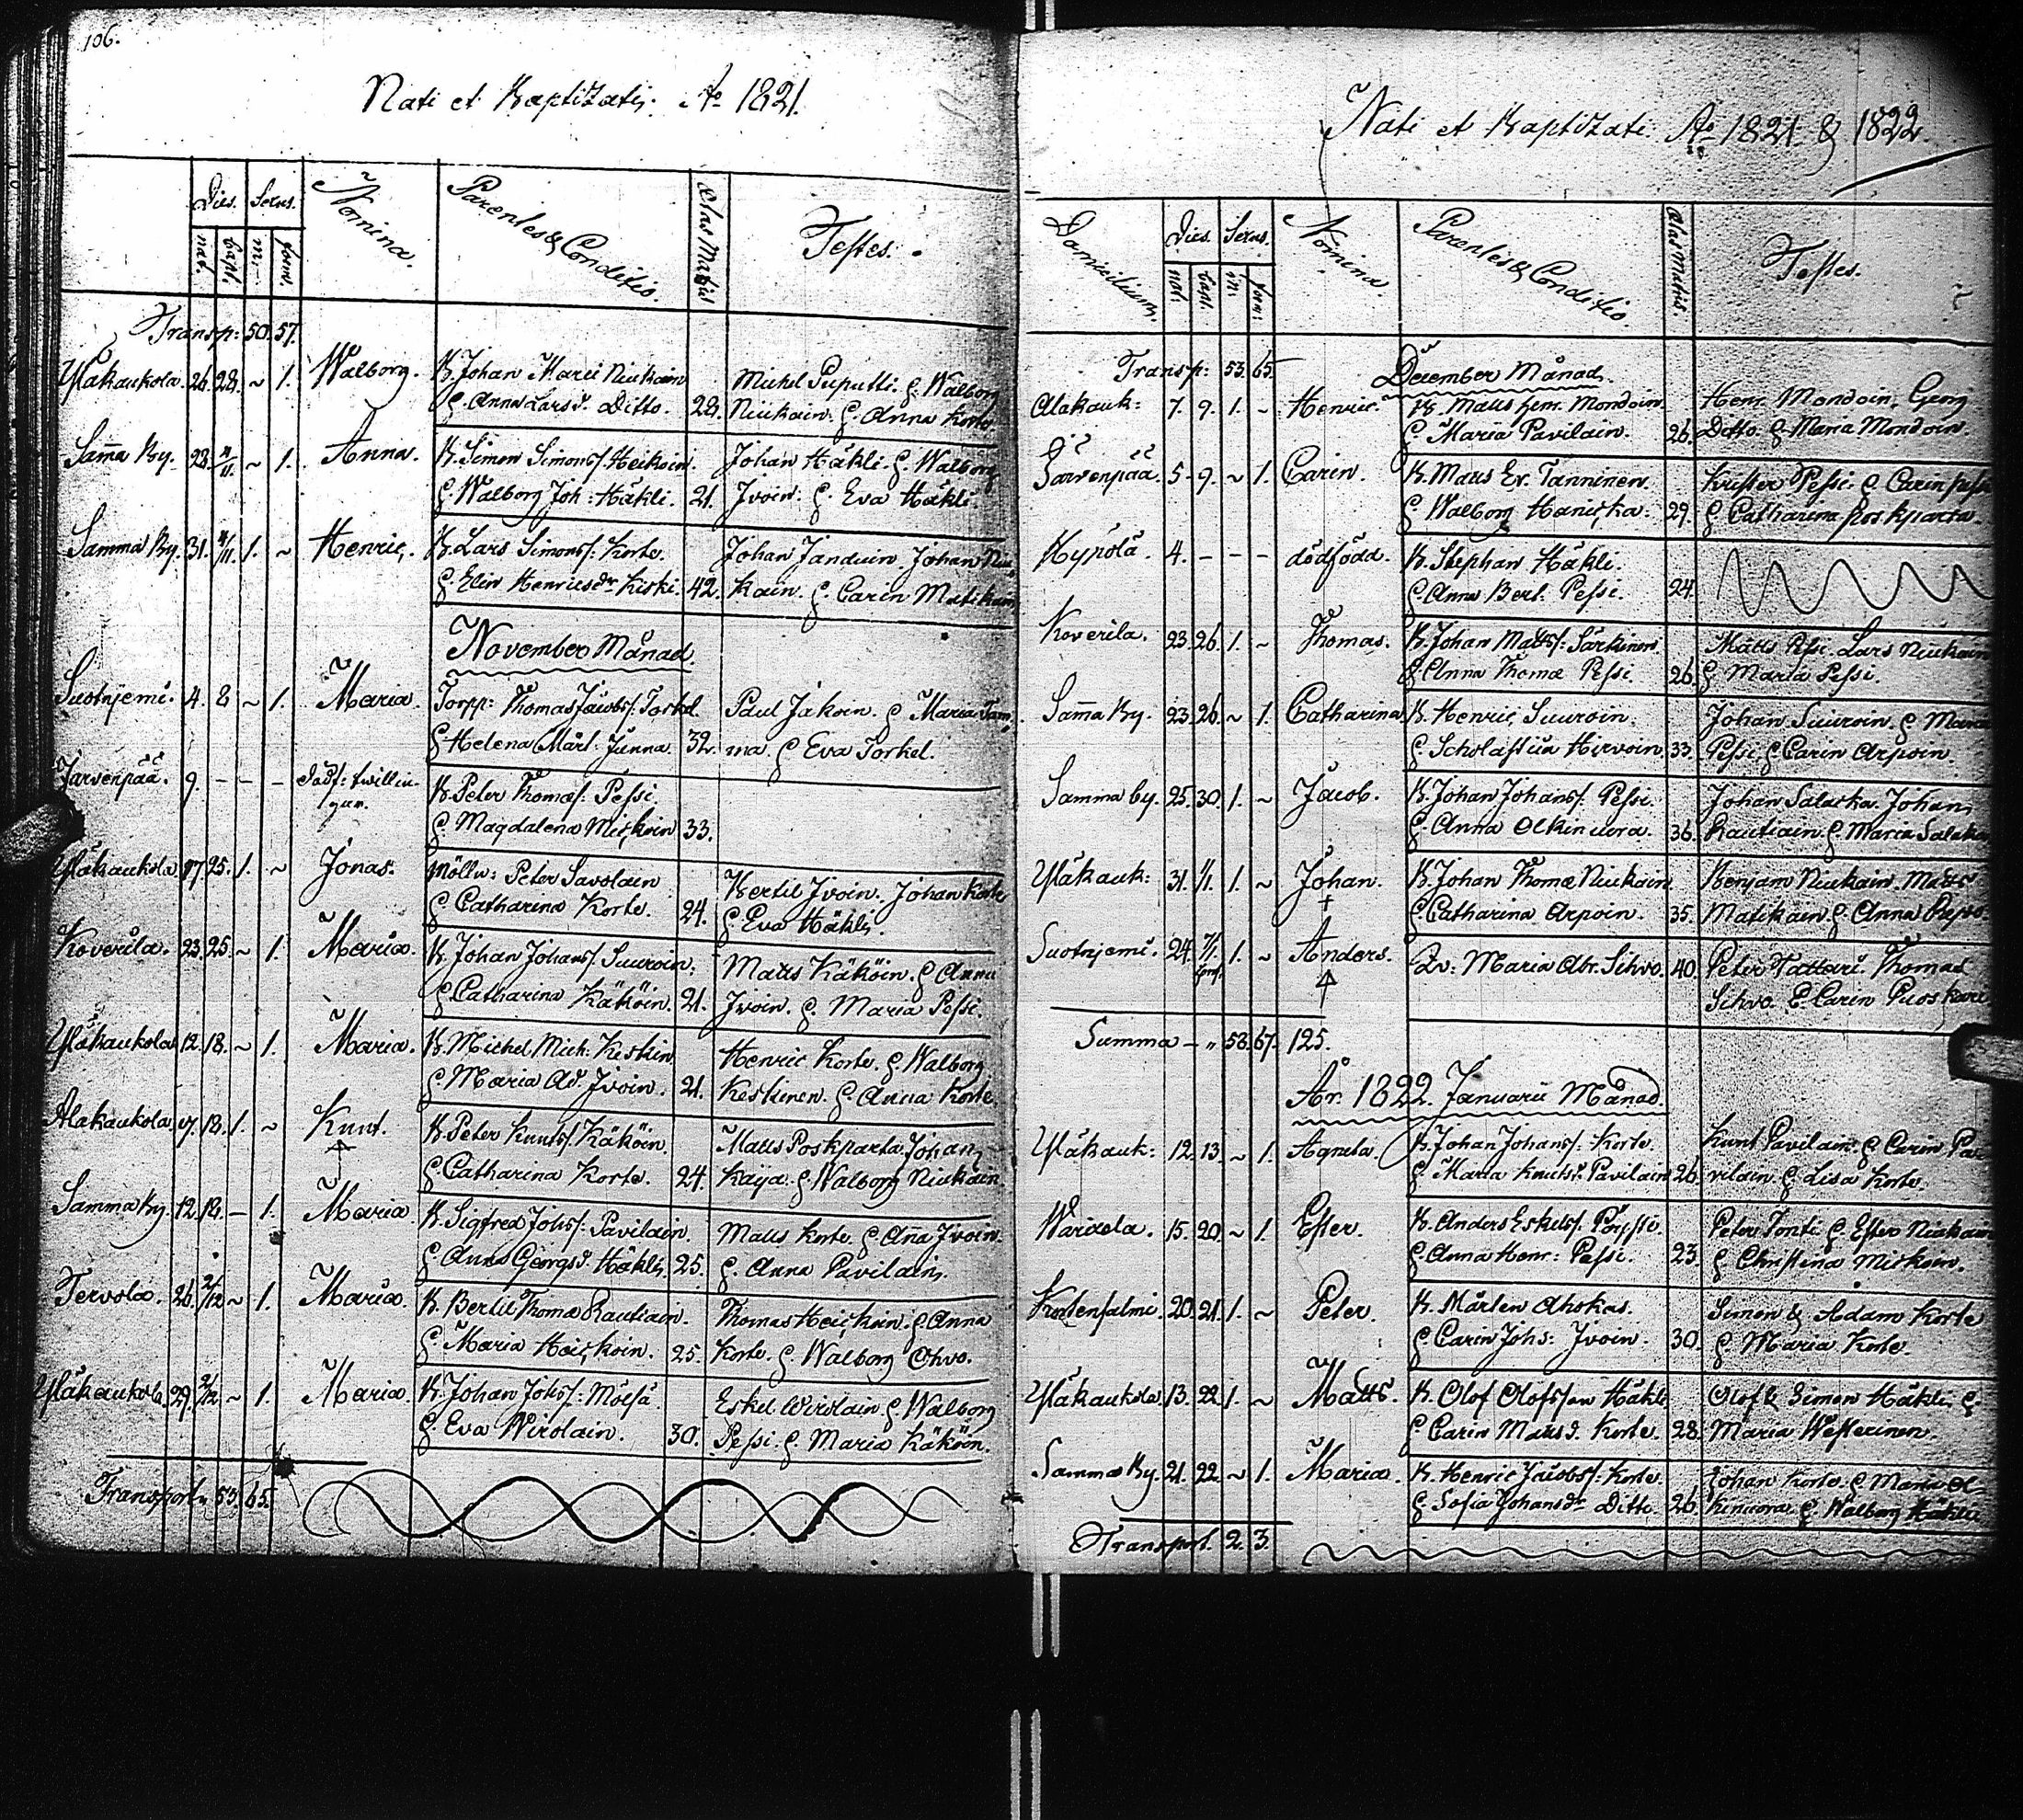 106.
Nati et Baptizati. Ao 1821.
Dies. Sexus. Nomina. Parentes & Conditio. Ætas Matris Testes.
nat. bapt. m: foem.
Transp: 50. 57.
Yläkaukola. 26. 28. ~ 1. Walborg. B. Johan Marci Niukain Michel Puputti. H. Walborg
H. Anna Larsd. Ditto. 28. Niukain. H. Anna Korte
Sama By. 28. 4/11. ~ 1. Anna. B. Simon Simons/. Heikoin. Johan Häkli. H. Walborg
H. Walborg Joh: Häkli. 21. Ivoin. H. Eva Häkli.
Samma By. 31. 4/11. 1. ~ Henric. B. Lars Simons/: Korte. Johan Janduin. Johan Niu
H. Elin Henricsdr Kiski. 42. kain. H. Carin Matikain
November Månad.
Suotnjemi. 4. 8 ~ 1. Maria. Torpp: Thomas Jacobs/. Torkel Paul Jakoin. H Maria Tam
H. Helena Mårt: Junna. 32. ma. H Eva Torkel.
Jarvenpää. 9. - - - Dödf: twillin- B. Peter Thomæ/: Pessi.
gar. H. Magdalena Miskoin 33.
Yläkaukola 17 25. 1. ~ Jonas. Mölln: Peter Savolain Bertil Ivoin. Johan Korte
H Catharina Korte. 24. H. Eva Häkli.
Koverila. 23. 25. ~ 1. Maria. B. Johan Johans/. Suuroin. Matts Käköin. H Anna
H Catharina Käköin. 21. Ivoin. H. Maria Pessi.
Yläkaukola 12. 18. ~ 1. Maria. B. Michel Mich: Keskin Henric Korte. H. Walborg
H. Maria Ad. Ivoin. 21. Keskinen. H Anna Korte.
Alakaukola, 17. 18. 1. ~ Knut. B. Peter Knuts/. Käköin. Matts Poskparta, Johan
H. Catharina Korte. 24. Kaija. H. Walborg Niukain
Samma By. 12. 18. - 1. Maria B. Sigfred Johs/: Pavilain. Matts Korte. H Aña Ivoin.
H. Anna Georgsd. Häkli. 25. H. Anna Pavilain.
Tervola. 26. 2/12 ~ 1. Maria. B. Bertil Thomæ Rautiain. Thomas Heiskoin. H Anna
H. Maria Heiskoin. 25. Korte. H. Walborg Ohvo.
Yläkaukola. 29. 2/12 ~ 1. Maria. B. Johan Johs/: Mölsä. Eskel Wirolain H Walborg
H. Eva Wirolain. 30. Pessi. H. Maria Käköin.
Transport. 53. 65.
Nati et Baptizati Ao 1821. & 1822.
Domicilium. Dies. Sexus. Nomina. Parentes & Conditio. Ætas Matris. Testes.
nat. bapt. m: foem:
Transp: 53. 65. December Månad.
Alakauk: 7. 9. 1. - Henric. B. Matts Henr. Mondoin. Henr. Mondoin, Georg
H. Maria Pavilain. 26. Ditto. H Maria Mondoin.
Järvenpää. 5. 9. ~ 1. Carin. B. Matts Er. Tanninen. Krister Pessi. H Carin Pessi
H Walborg Haniska. 29. H Catharina Poskparta.
Hypölä. 4. - - - dödfödd. B. Stephan Häkli.
H. Anna Bert. Pessi. 24.
Koverila. 23. 26. 1. ~ Thomas. B. Johan Matts/: Särkinen Matts Pessi. Lars Niukain
H. Anna Thomæ Pessi. 26. H Maria Pessi.
Sama By. 23. 26. ~ 1. Catharina B. Henric Suuroin. Johan Suuroin. H Maria
H. Scholastica Hirvoin. 33. Pessi. H Carin Arpoin.
Samma by. 25. 30. 1. ~ Jacob. B. Johan Johans/. Pessi. Johan Salacka. Johan
H. Anna Olkinuora. 36. Rautiain. H Maria Salaka
Yläkauk: 31. 1/1. 1. ~ Johan. B. Johan Thomæ Niukain. Benjam Niukain. Matts
H. Catharina Arpoin. 35. Matikain H. Anna
Suotnjemi. 24. 7/1. 1. ~ Anders. Qv: Maria Abr. Sihvo. 40. Peter Tattari. Thomas
Sihvo. H. Carin Puoskari
Summa - " 58. 67. 125.
År 1822. Januarii Månad.
Yläkauk: 12. 13. ~ 1. Agneta. B. Johan Johans/: Korte. Knut Pavilain. H Carin Pa
H. Maria Knutsd. Pavilain 26. vilain. H Lisa Korte.
Warixola. 15. 20. ~ 1. Ester. B. Anders Eskels/. Pöysti. Peter Tonti. H. Ester Niukain
H. Anna Henr: Pessi. 23. H Christina Miskoin.
Kortensalmi. 20. 21. 1. ~ Peter. B. Mårten Ahokas. Simon & Adam Korte
H Carin Johs: Ivoin. 30. H Maria Korte.
Yläkaukola. 13. 22. 1. ~ Matts. B. Olof Olofsson Häkli Olof & Simon Häkli. H.
H Carin Mattsd. Korte. 28. Maria Westerinen.
Samma By. 21. 22. ~ 1. Maria. B. Henric Jacobs/: Korte. Johan Korte. H Maria Ol-
H Sofia Johansdr Ditto. 26. kinuora. H Walborg Häkli
Transport. 2. 3.